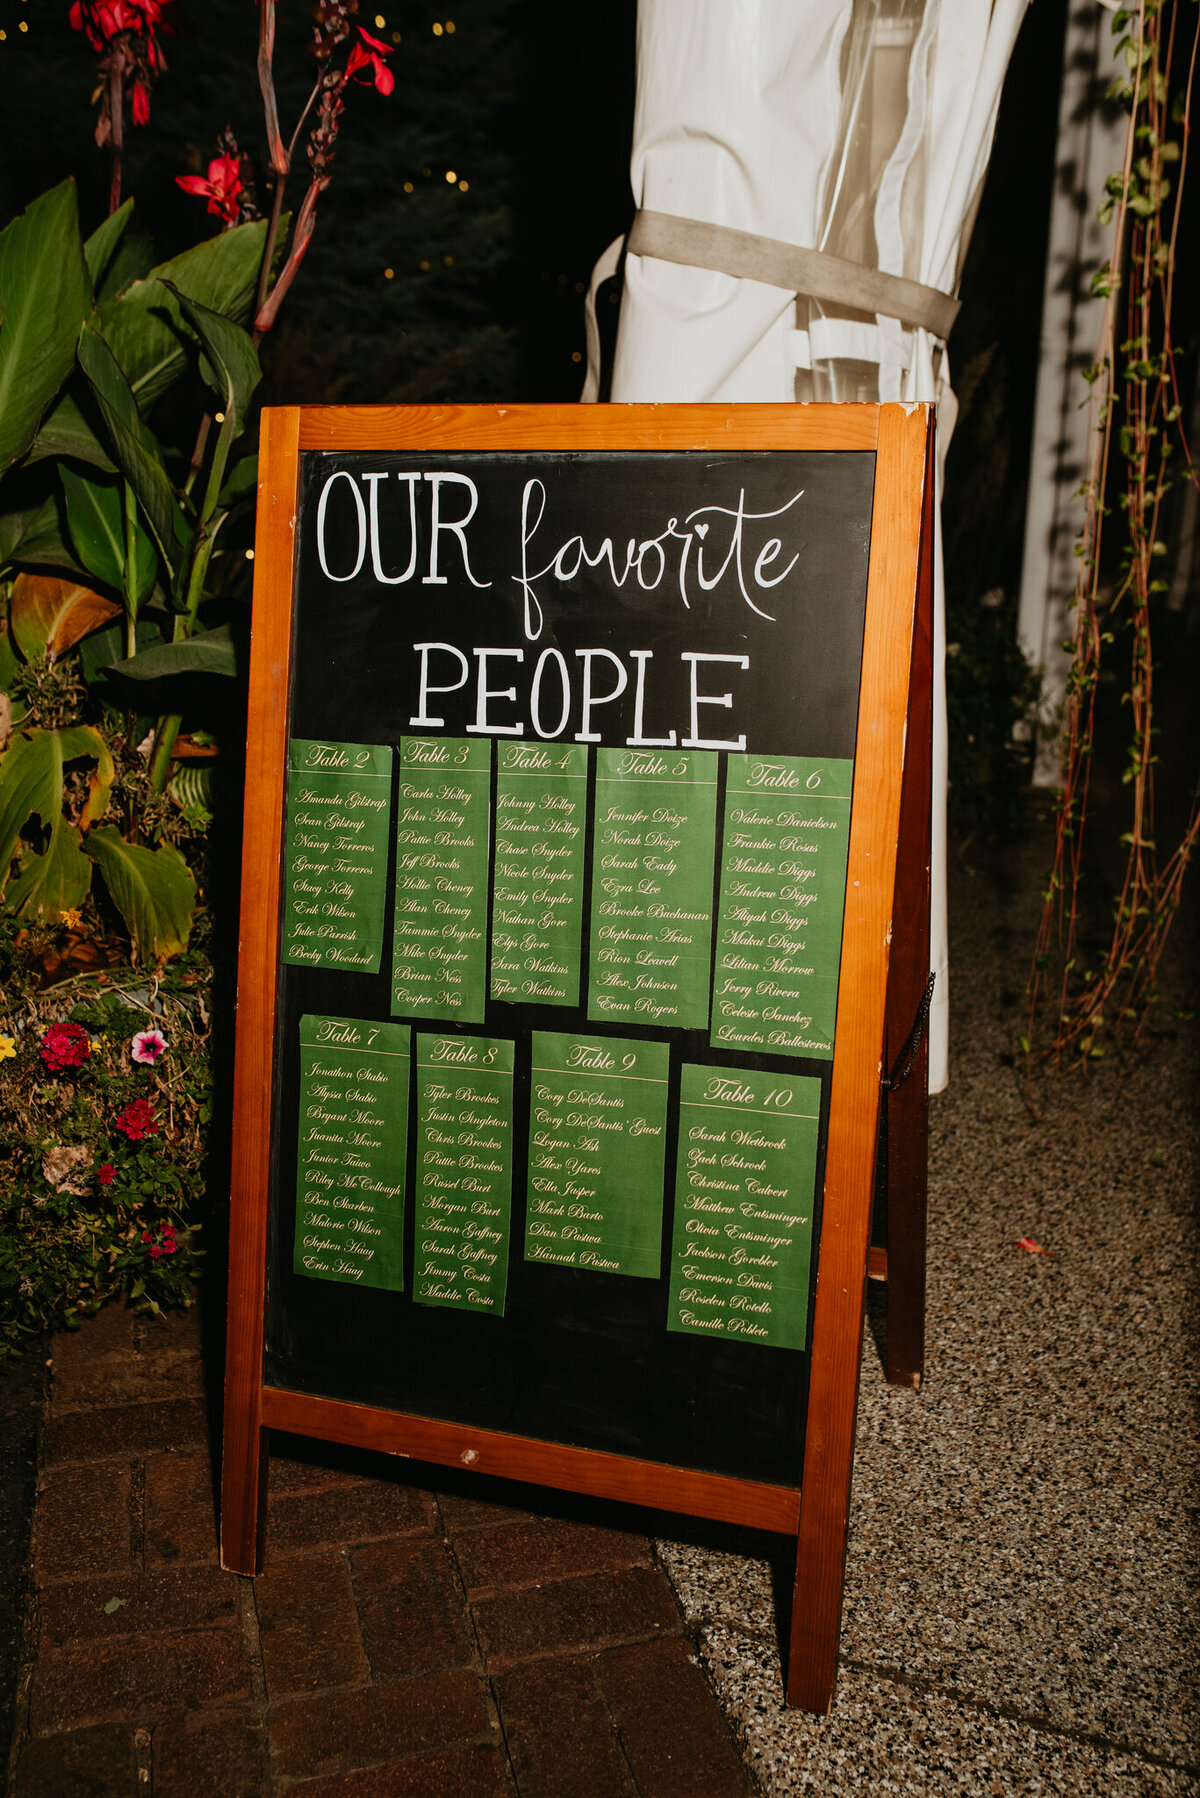 OUR favorite
PEOPLE
Table 2
Amanda Gilstrap
Sean Gilstrap
Nancy Torreros
George Torreros
Stacy Kelly
Erik Wilson
Julie Parrish
Becky Woodard
Table 3
Carla Holley
John Holley
Pattie Brooks
Jeff Brooks
Hollie Cheney
Alan Cheney
Tammie Snyder
Mike Snyder
Brian Ness
Cooper Ness
Table 4
Johnny Holley
Andrea Holley
Chase Snyder
Nicole Snyder
Emily Snyder
Nathan Gore
Elys Gore
Sara Watkins
Tyler Watkins
Table 5
Jennifer Doize
Norah Doize
Sarah Eady
Ezra Lee
Brooke Buchanan
Stephanie Arias
Rion Leavell
Alex Johnson
Evan Rogers
Table 6
Valerie Danielson
Frankie Rosas
Maddie Diggs
Andrew Diggs
Aliyah Diggs
Makai Diggs
Lilian Morrow
Jerry Rivera
Celeste Sanchez
Lourdes Ballesteros
Table 7
Jonathon Stabio
Alyssa Stabio
Bryant Moore
Juanita Moore
Junior Taiwo
Riley McCollough
Ben Skarben
Malorie Wilson
Stephen Haag
Erin Haag
Table 8
Tyler Brookes
Justin Singleton
Chris Brookes
Pattie Brookes
Russel Burt
Morgan Burt
Aaron Gaffney
Sarah Gaffney
Jimmy Costa
Maddie Costa
Table 9
Cory DeSantis
Cory DeSantis' Guest
Logan Ash
Alex Yares
Ella Jasper
Mark Barto
Dan Pastwa
Hannah Pastwa
Table 10
Sarah Wietbrock
Zach Schrock
Christina Calvert
Matthew Entsminger
Olivia Entsminger
Jackson Gorebler
Emerson Davis
Roselen Rotello
Camille Poblete